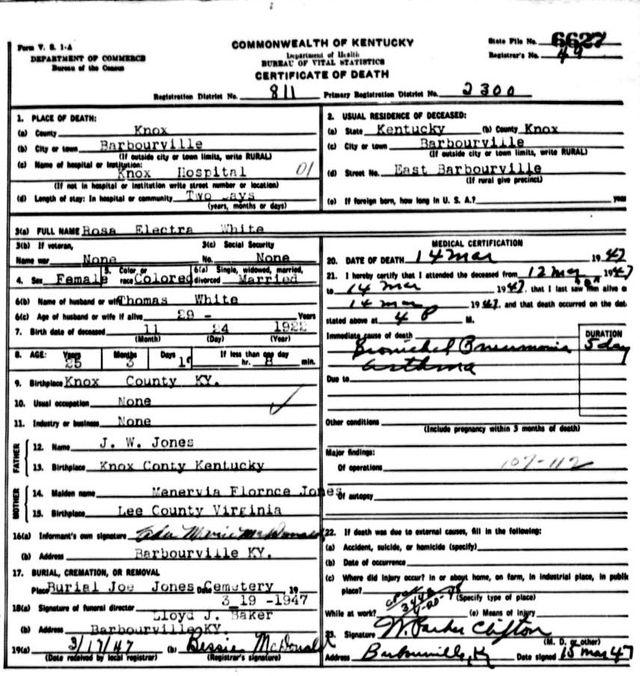 Form V. S. 1-A
DEPARTMENT OF COMMERCE
Bureau of the Census
COMMONWEALTH OF KENTUCKY
Department of Health
BUREAU OF VITAL STATISTICS
CERTIFICATE OF DEATH
State File No. 6627
Registrar's No. 49
Registration District No. 811 Primary Registration District No. 2300
1. PLACE OF DEATH:
(a) County Knox
(b) City or town Barbourville
(If outside city or town limits, write RURAL)
(c) Name of hospital or institution:
Knox Hospital 01
(If not in hospital or institution write street number or location)
(d) Length of stay: In hospital or community Two Days
(years, months or days)
2. USUAL RESIDENCE OF DECEASED:
(a) State Kentucky (b) County Knox
(c) City or town Barbourville
(If outside city or town limits, write RURAL)
(d) Street No. East Barbourville
(If rural give precinct)
(e) If foreign born, how long in U. S. A.? years
3(a) FULL NAME Rosa Electra White
3(b) If veteran,
Name war None
3(c) Social Security
No. None
4. Sex Female 5. Color or race Colored 6(a) Single, widowed, married, divorced Married
6(b) Name of husband or wife Thomas White
6(c) Age of husband or wife if alive 29 - Years
7. Birth date of deceased 11 24 1922
(Month) (Day) (Year)
8. AGE: Years Months Days If less than one day
25 3 hr. min.
9. Birthplace Knox County KY.
10. Usual occupation None
11. Industry or business None
FATHER
12. Name J. W. Jones
13. Birthplace Knox Conty Kentucky
MOTHER
14. Maiden name Menervia Flornce Jones
15. Birthplace Lee County Virginia
16(a) Informant's own signature McDonald
(b) Address Barbourville KY.
17. BURIAL, CREMATION, OR REMOVAL
Place Burial Joe Jones Cemetery Date 19
3 19 -1947
18(a) Signature of funeral director
Lloyd J. Baker
(b) Address Barbourville KY.
19(a) 3/17/47 (b) Bessie McDonald
(Date received by local registrar) (Registrar's signature)
MEDICAL CERTIFICATION
20. DATE OF DEATH 14 Mar 1947
21. I hereby certify that I attended the deceased from 12 Mar 1947
to 14 Mar 1947, that I last saw him alive o
14 mar 1947, and that death occurred on the dat
stated above at 4 P M.
Immediate cause of death
DURATION
Bronichel Pneumonia 5 day
asthma
Due to
Other conditions
(Include pregnancy within 3 months of death)
Major findings:
Of operations 107-112
Of autopsy
22. If death was due to external causes, fill in the following:
(a) Accident, suicide, or homicide (specify)
(b) Date of occurrence
(c) Where did injury occur? In or about home, on farm, in industrial place, in public
place?
(Specify type of place)
While at work? (e) Means of Injury
23. Signature W. Parker Clifton
(M. D. or other)
Address Barbourville, Ky Date signed 15 Mar 47